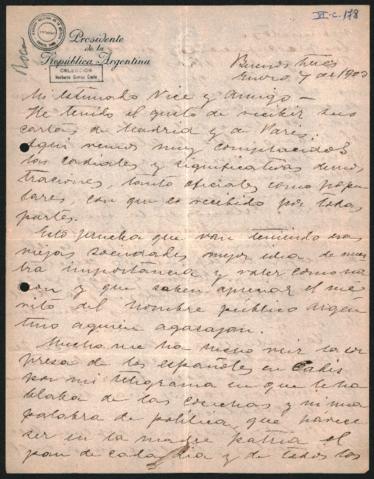 VI-C.178
Roca
Presidente
de la
República Argentina
COLECCION
Buenos Aires
Enero, 7 de 1903
Mi estimado Vice y amigo—
He tenido el gusto de recibir sus
cartas de Madrid y de Paris.
Aqui vemos muy complacidos
las cordiales y significativas demos
traciones, tanto oficiales como popu
lares, con que es recibido por todas
partes.
Esto prueba que van teniendo esas
viejas sociedades mejor idea de nues
tra importancia y valer como na
cion y que saben apreciar el me
rito del hombre público argen
tino a quien agasajan.
Mucho me ha hecho reir la sor
presa de los españoles en Cadiz
por mi telegrama en que le ha
blaba de las cosechas y ni una
palabra de politica, que parece
ser en la madre patria el
pan de cada dia y de todos los